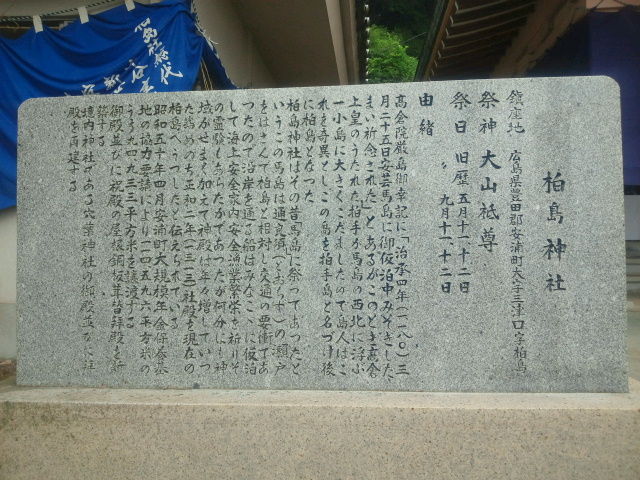 柏島神社
鎮座地 広島県豊田郡安浦町大字三津口字柏島
祭神 大山祗尊
祭日 旧歴 五月十一・十二日
〃 九月十一・十二日
由緒
高倉院厳島御幸記に「治承四年(一一八〇)三
月二十五日安芸馬島に御仮泊中みそぎした
まい祈念された」とあるがこのとき高倉
上皇のうたれた拍手が馬島の西北に浮ぶ
一小島に大きくこだましたので島人はこ
れを奇異としこの島を拍手島と名づけ後
に柏島となった
柏島神社はその昔馬島に祭ってあったと
いうこの馬島は通良須(とおらす)の瀬戸
をはさんで柏島と相対し交通の要衝であ
ったので沿岸を通る船はみなここに仮泊
して海上安全家内安全漁業繁栄を祈りそ
の霊験もあらたかであったが何分にも神
域がせまく加えて神殿は年々増していっ
た為めのち正和二年(一三一三)社殿を現在の
柏島へうつしたと伝えられている
昭和五十年四月安浦町大規模年金保養基
地の協力要請により一四五九六平方米の
うち九四九三三平方米を譲渡する
御殿並びに祝殿の屋根銅板葺替拝殿を新
築する
境内神社である穴葉神社の御殿並
殿を再建する